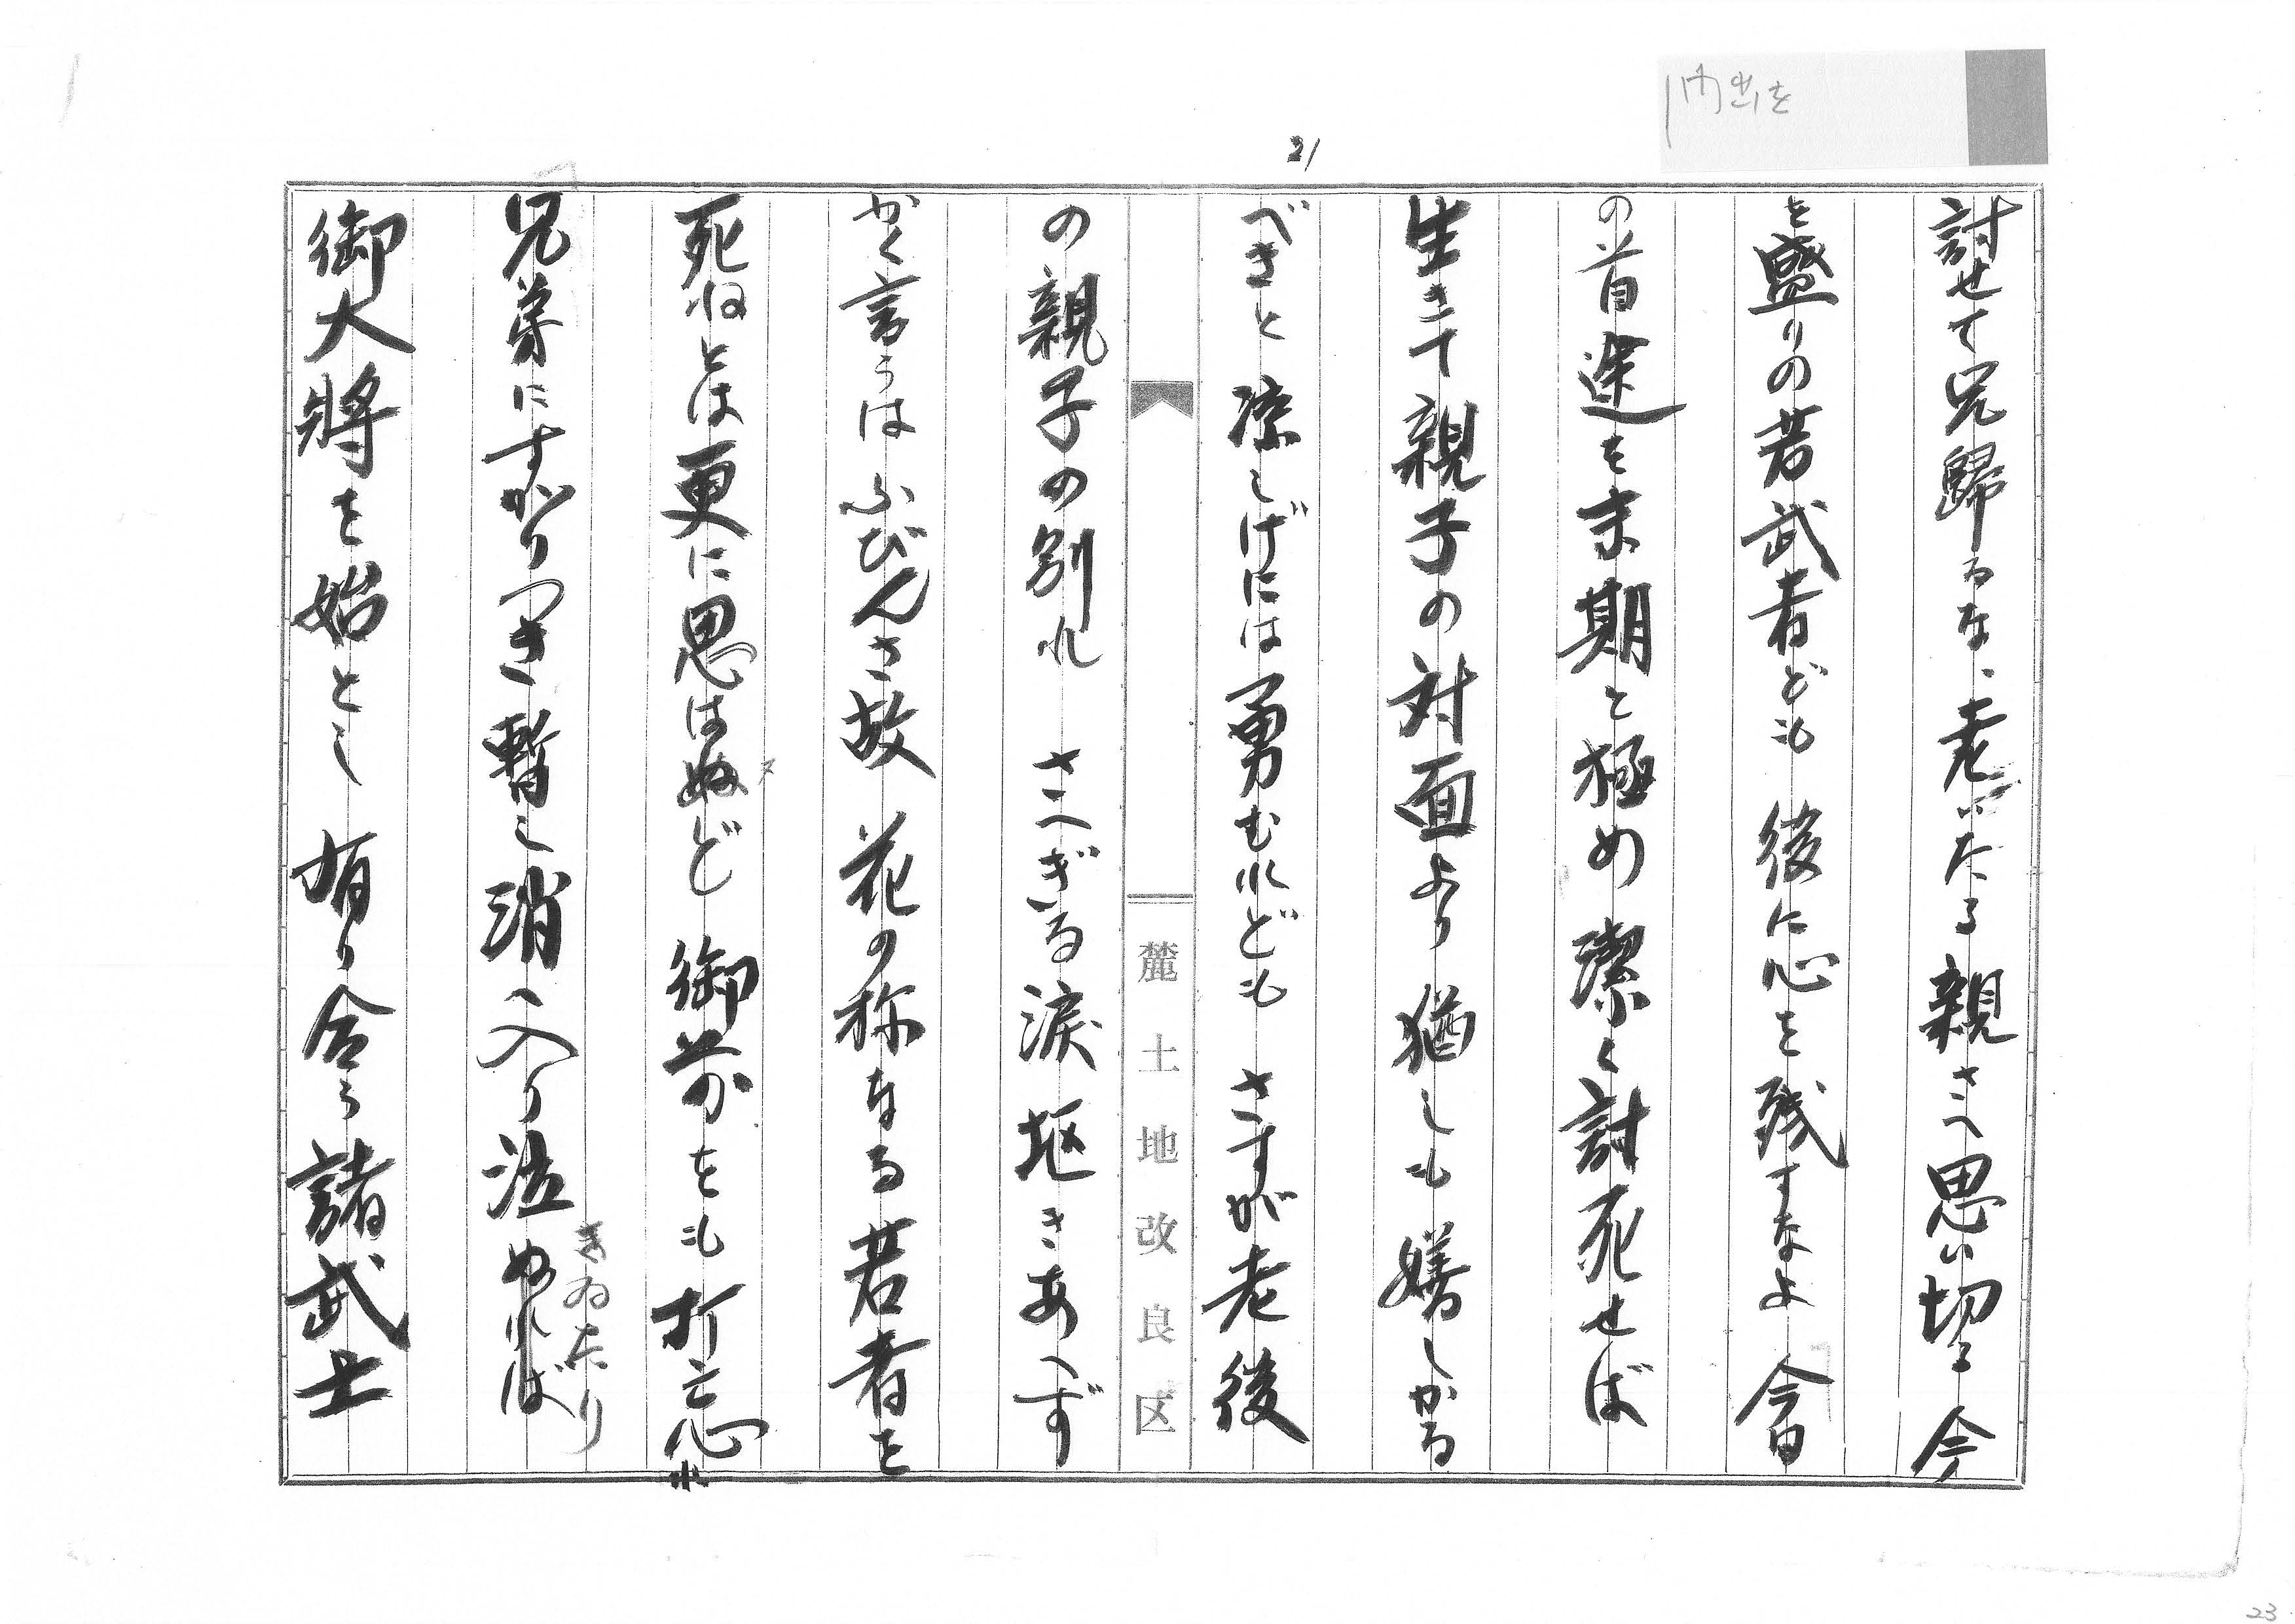 門出を
21
討せて兄歸るな、老いたる親さへ思い切る今
を盛りの若武者ども 後に心を残すなよ 今日
の首途を末期と極め潔く討死せば
生きて親子の対面より猶しも嬉しかる
べきと凛しげには勇むれども さすが老後
麓土地改良区
の親子の別れ さへぎる涙抠きあへず
かく言うはふびんさ故 花の称なる若者を
死ねとは更に思はぬど 御前をも打忘れ
兄弟にすがりつき暫し消入り泣ぬれば
きゐたり
御大将を始とし 有り合う諸武士
23